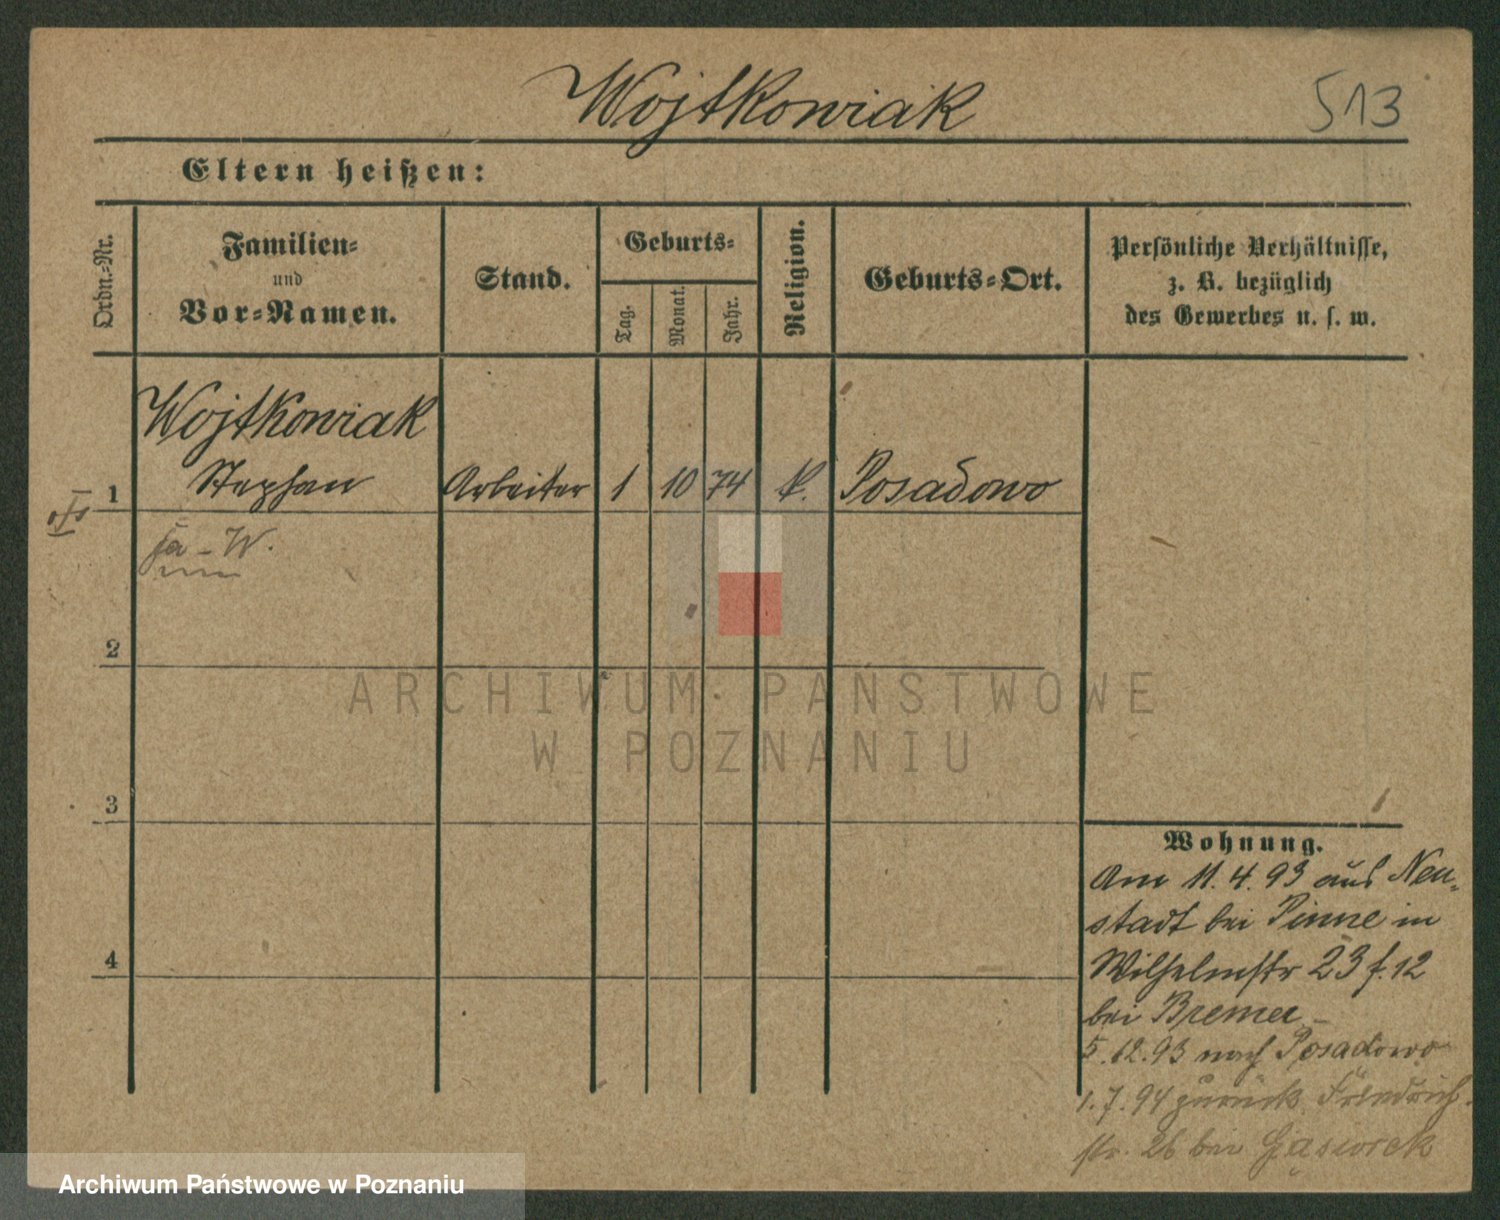 Wojtkowiak
513
Eltern heißen:
Ordn.-Nr.
Familien-
und
Vor-Namen.
Stand.
Geburts-
Tag.
Monat.
Jahr.
Religion.
Geburts-Ort.
Persönliche Verhältnisse,
z. B. bezüglich
des Gewerbes u. s. w.
Wojtkowiak
1 Stephan Arbeiter 1 10 74 k. Posadowo
W.
2
ARCHIWUM PAŃSTWOWE
W POZNANIU
3
4
Wohnung.
Am 11.4.93 aus Neu-
stadt bei Pinne in
Wilhelmstr 23 f. 12
bei Bremer
5.12.93 nach Posadowo
1.7.94 zurück Friedrich-
str. 26 bei Gąsiorek
Archiwum Państwowe w Poznaniu